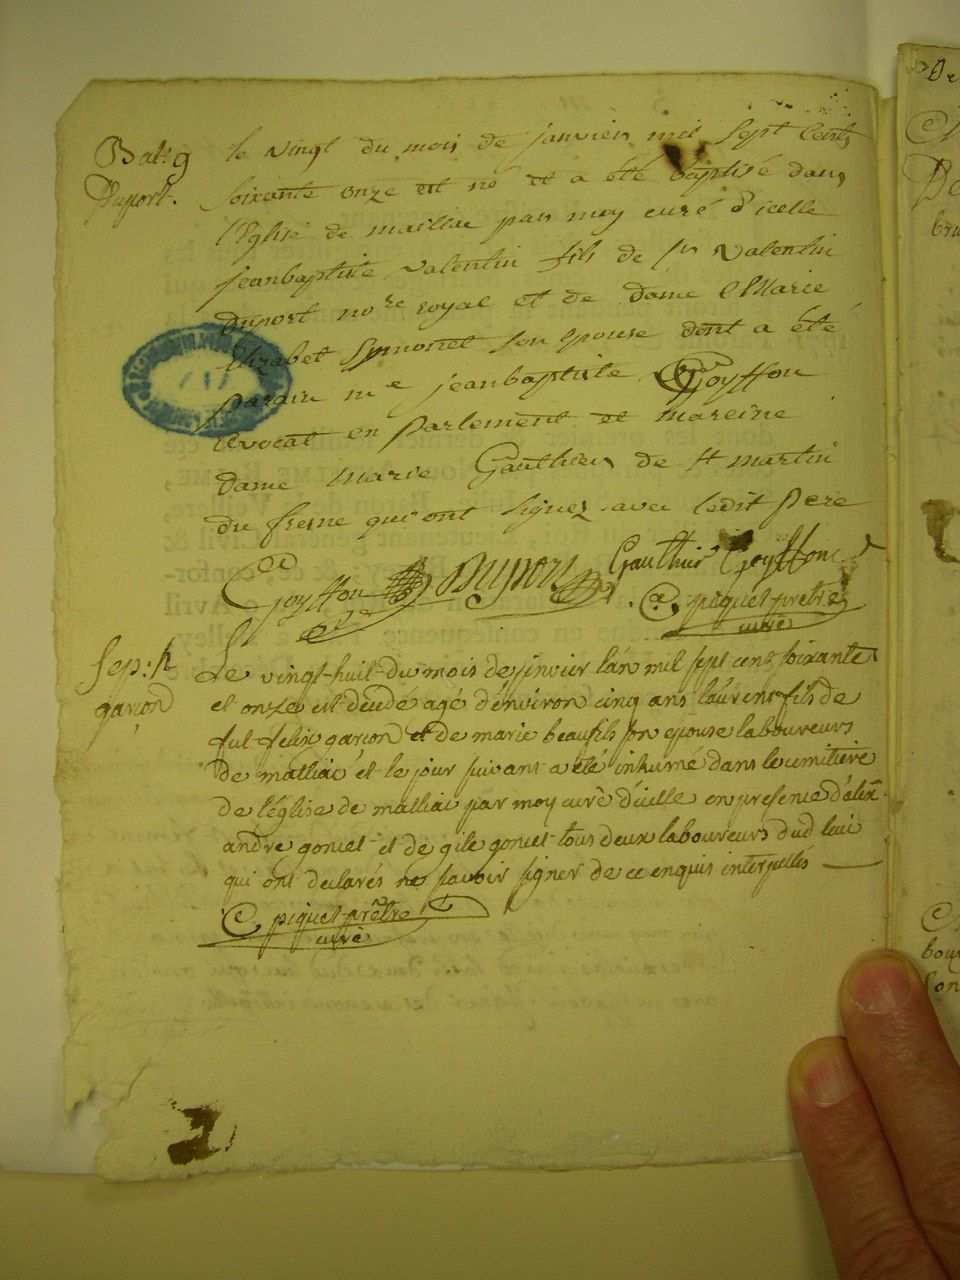 Bat: 9
Duport.
le vingt du mois de janvier mil sept cents
soixante onze est né et a été baptisé dans
l'Eglise de maillac par moy curé d'icelle
jeanbaptiste valentin fils de sr valentin
duport nore royal et de dame Marie
Elizabet Symonet son epouse dont a été
parain me jeanbaptiste Goyffon
avocat en parlement et mareine
dame marie Gauthier de st martin
du fresne qui ont signez avec ledit pere
Goyffon Duport Gauthier Goyffon
piquet prêtre
curé
Sep: re
garçon
Le vingt-huit du mois de janvier l'an mil sept cens soixante
et onze est décédé agé d'environ cinq ans laurens fils de
fut felix garçon et de marie beaufils son epouse laboureurs
de malliac et le jour suivant a été inhumé dans le cimitière
de l'église de malliac par moy curé d'icelle en présence d'alix-
andre goniet et de gile goniet tous deux laboureurs dud lieu
qui ont declarés ne savoir signer de ce enquis interpellés
piquet prêtre
curé